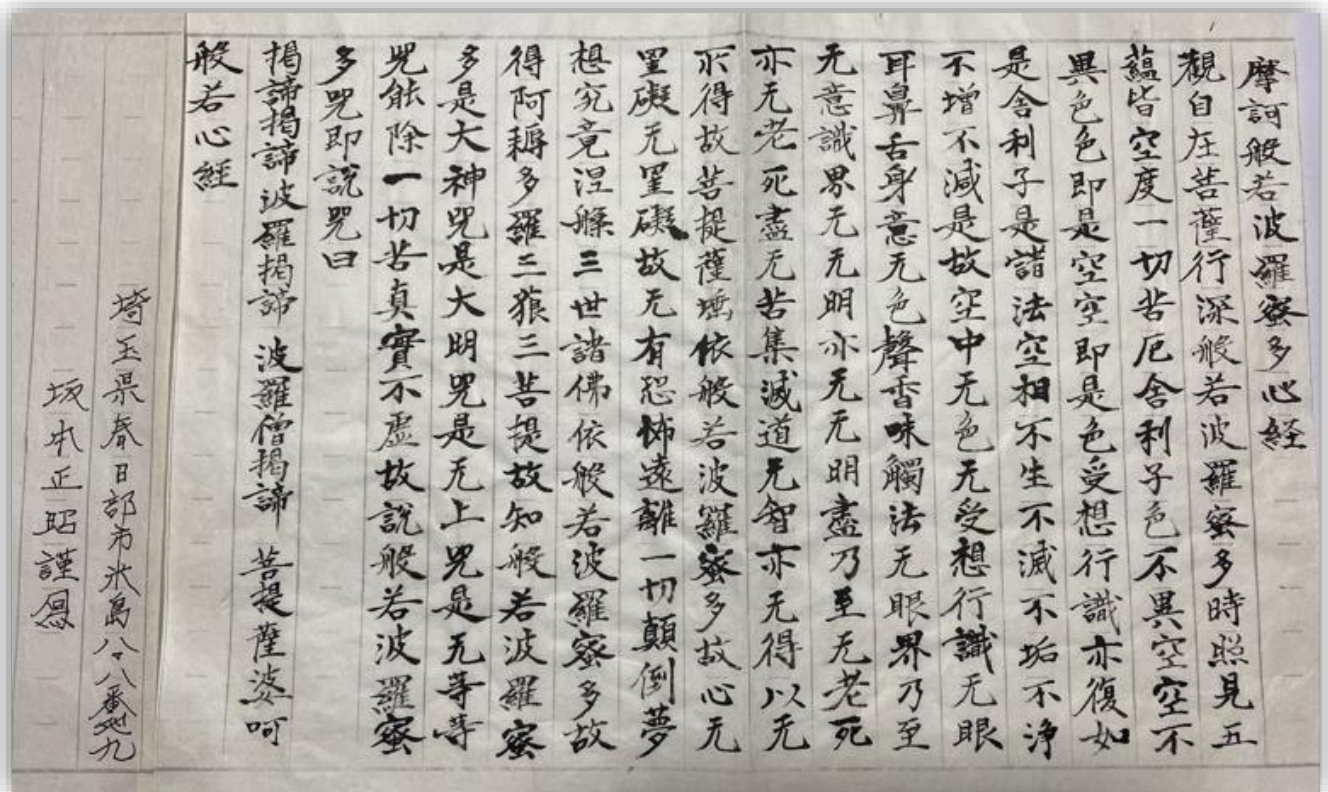 摩訶般若波羅蜜多心経
觀自在菩薩行深般若波羅蜜多時照見五
蘊皆空度一切苦厄舍利子色不異空空不
異色色即是空空即是色受想行識亦復如
是舍利子是諸法空相不生不滅不垢不浄
不增不減是故空中无色无受想行識无眼
耳鼻舌身意无色聲香味觸法无眼界乃至
无意識界无无明亦无无明盡乃至无老死
亦无老死盡无苦集滅道无智亦无得以无
所得故菩提薩埵依般若波羅蜜多故心无
罣礙无罣礙故无有恐怖遠離一切顛倒夢
想究竟涅槃三世諸佛依般若波羅蜜多故
得阿耨多羅三藐三菩提故知般若波羅蜜
多是大神咒是大明咒是无上咒是无等等
咒能除一切苦真實不虛故說般若波羅蜜
多咒即說咒曰
揭諦揭諦波羅揭諦 波羅僧揭諦 菩提薩婆呵
般若心経
埼玉県春日部市米島八八八番地九
坂本正昭謹